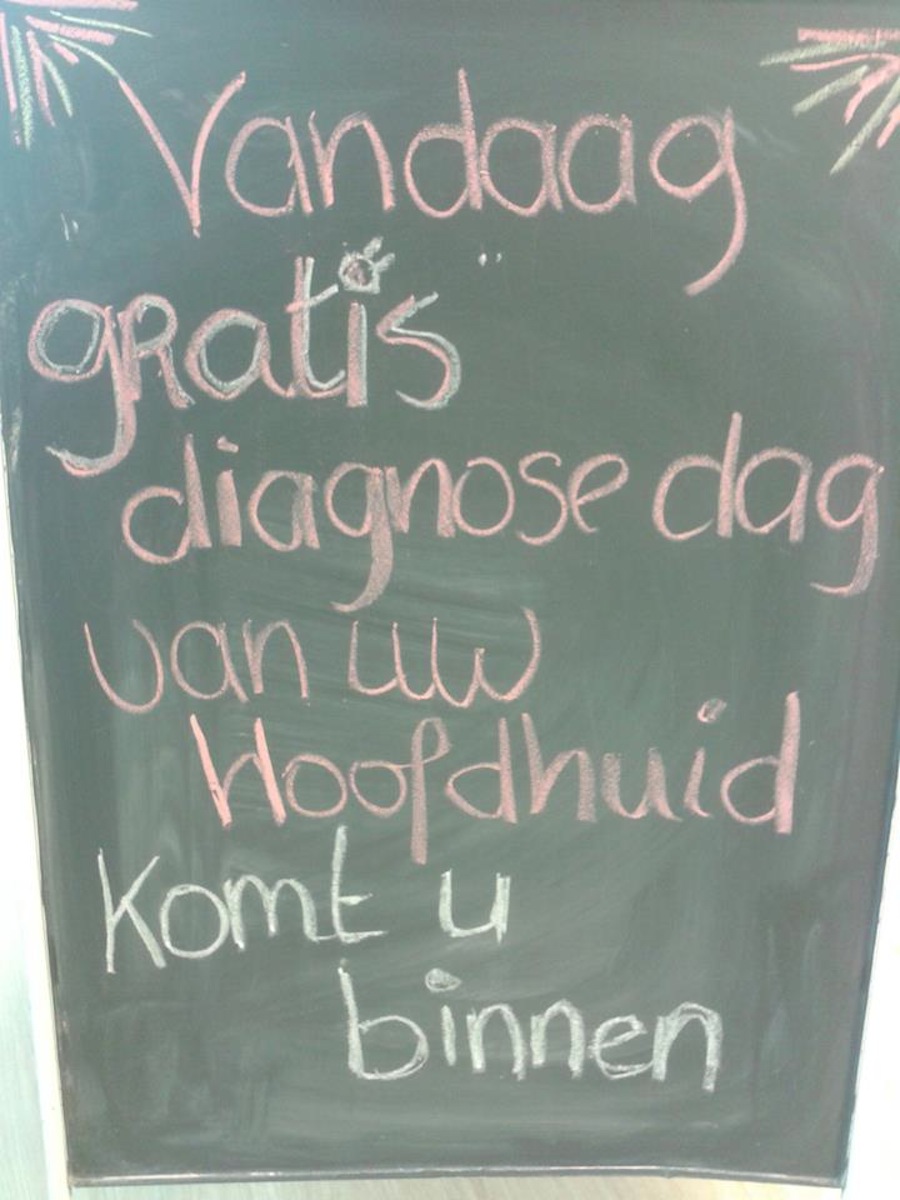 Vandaag
gratis
diagnose dag
van uw
Hoofdhuid
Komt u
binnen